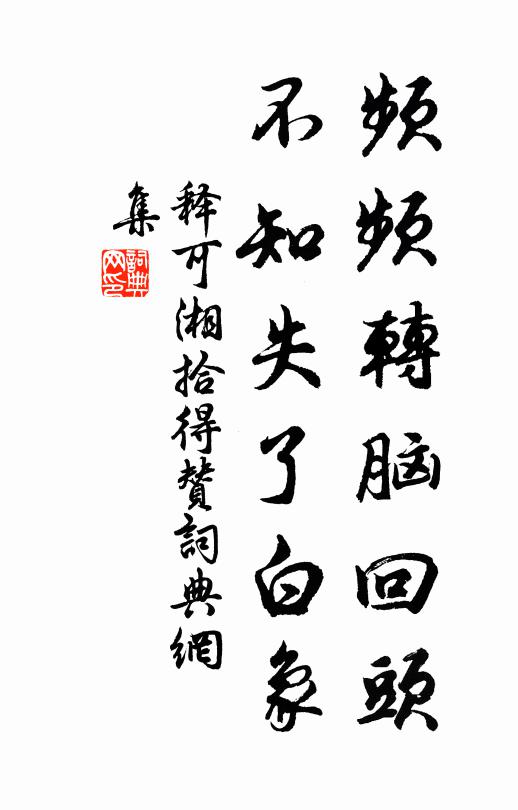 頻頻轉脑回頭
不知失了白象
释可湘拾得贊詞典網
集
詞典
网印